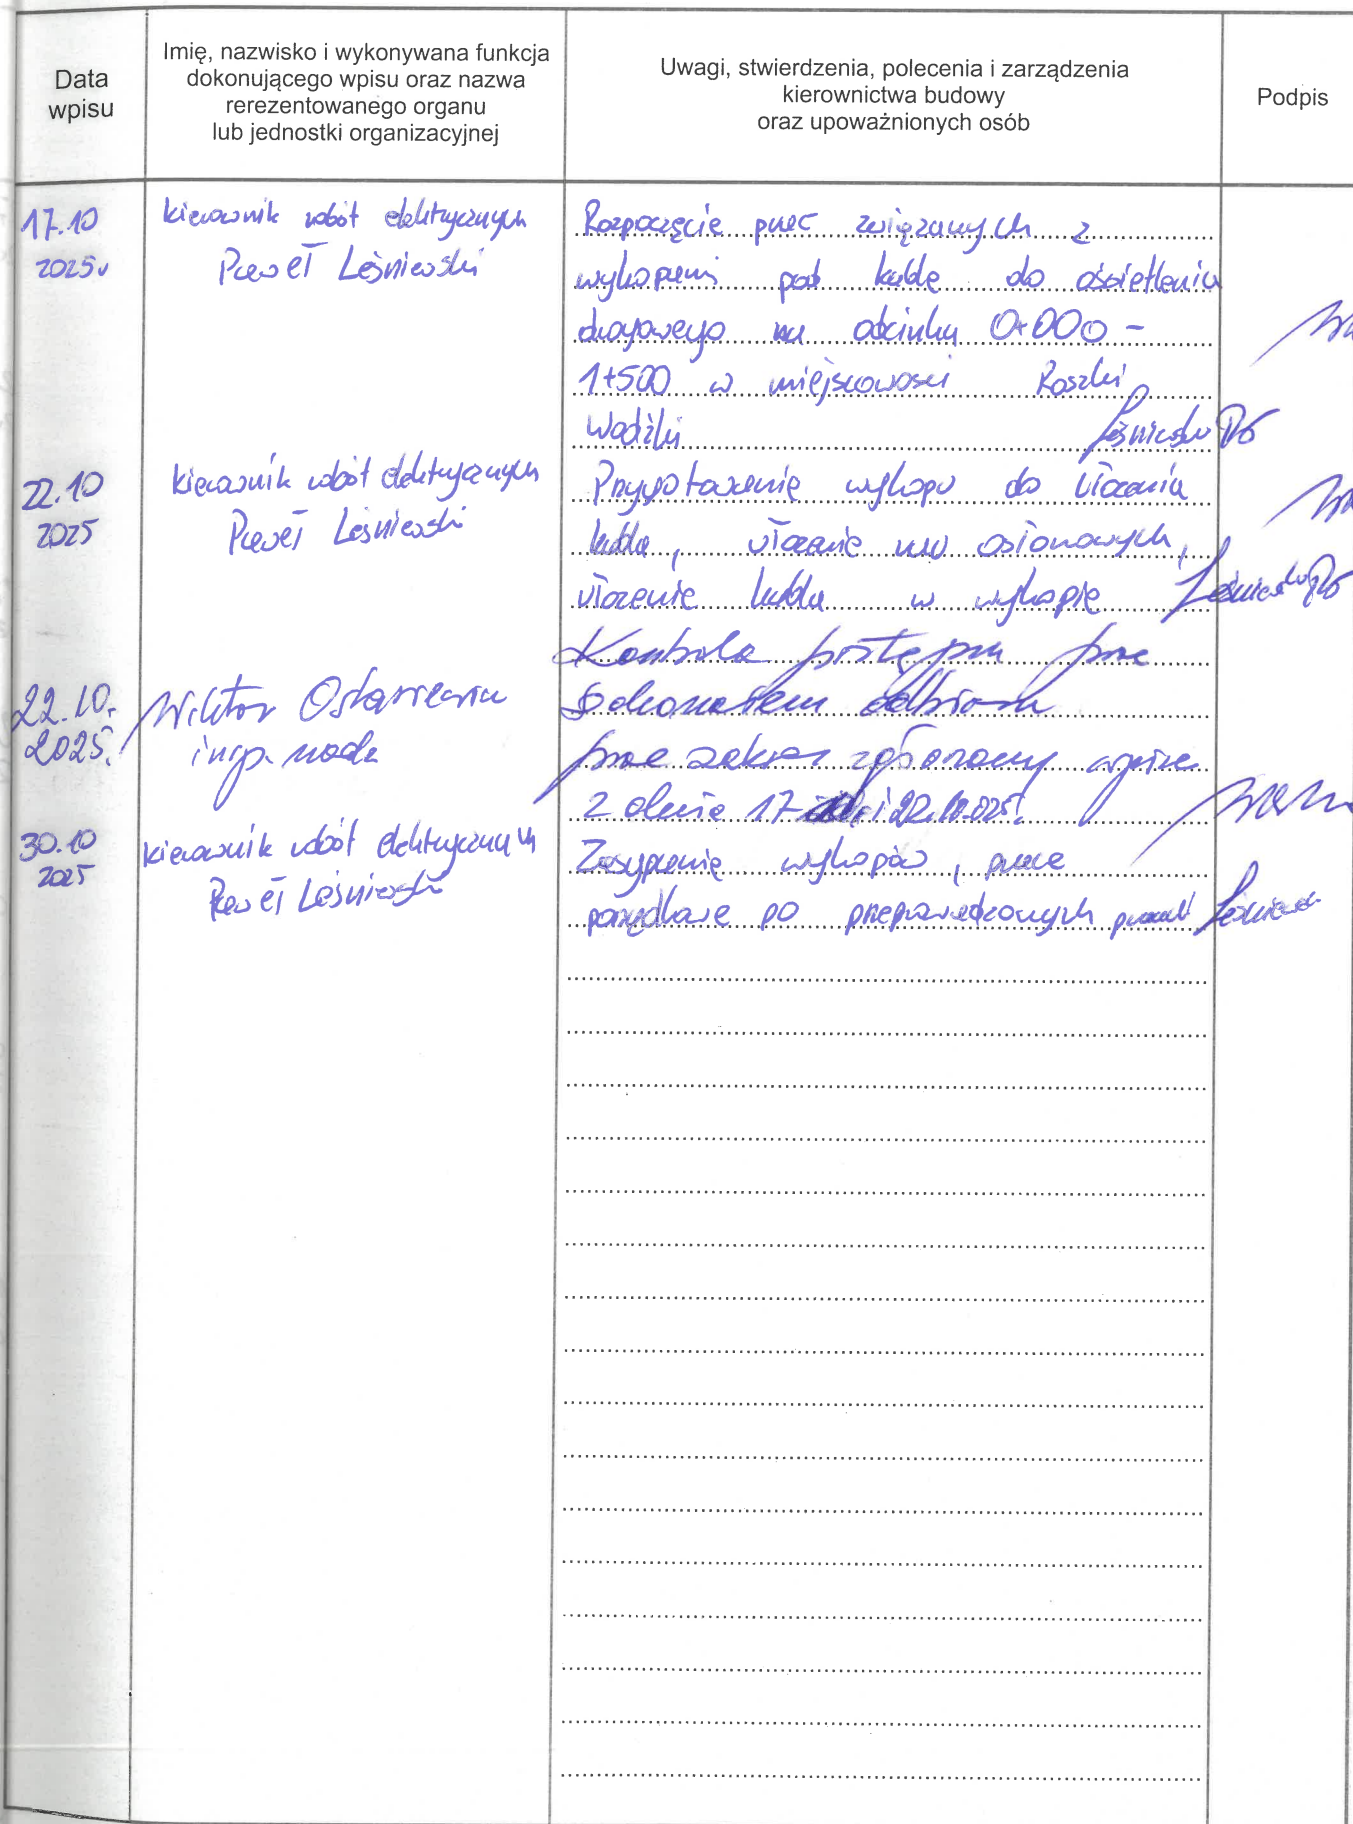 Data
wpisu
Imię, nazwisko i wykonywana funkcja
dokonującego wpisu oraz nazwa
rerezentowanego organu
lub jednostki organizacyjnej
Uwagi, stwierdzenia, polecenia i zarządzenia
kierownictwa budowy
oraz upoważnionych osób
Podpis
17.10
2025r
kierownik robót elektrycznych
Paweł Leśniewski
Rozpoczęcie prac związanych z
wykopami pod kable do oświetlenia
drogowego na odcinku 0+000 -
1+500 w miejscowości Roszki
Wodźki
22.10
2025
kierownik robót elektrycznych
Paweł Leśniewski
Przygotowanie wykopu do ułożenia
kabla, ułożenie rur osłonowych,
ułożenie kabla w wykopie
22.10.
2025.
Wiktor
insp. nadz
Kontrola postępu prac
Dokonałem odbioru
prac zakres zgłoszony
z dnia 17 i 22.10.025.
30.10
2025
kierownik robót elektrycznych
Paweł Leśniewski
Zasypanie wykopów, prace
porządkowe po przeprowadzonych pracach